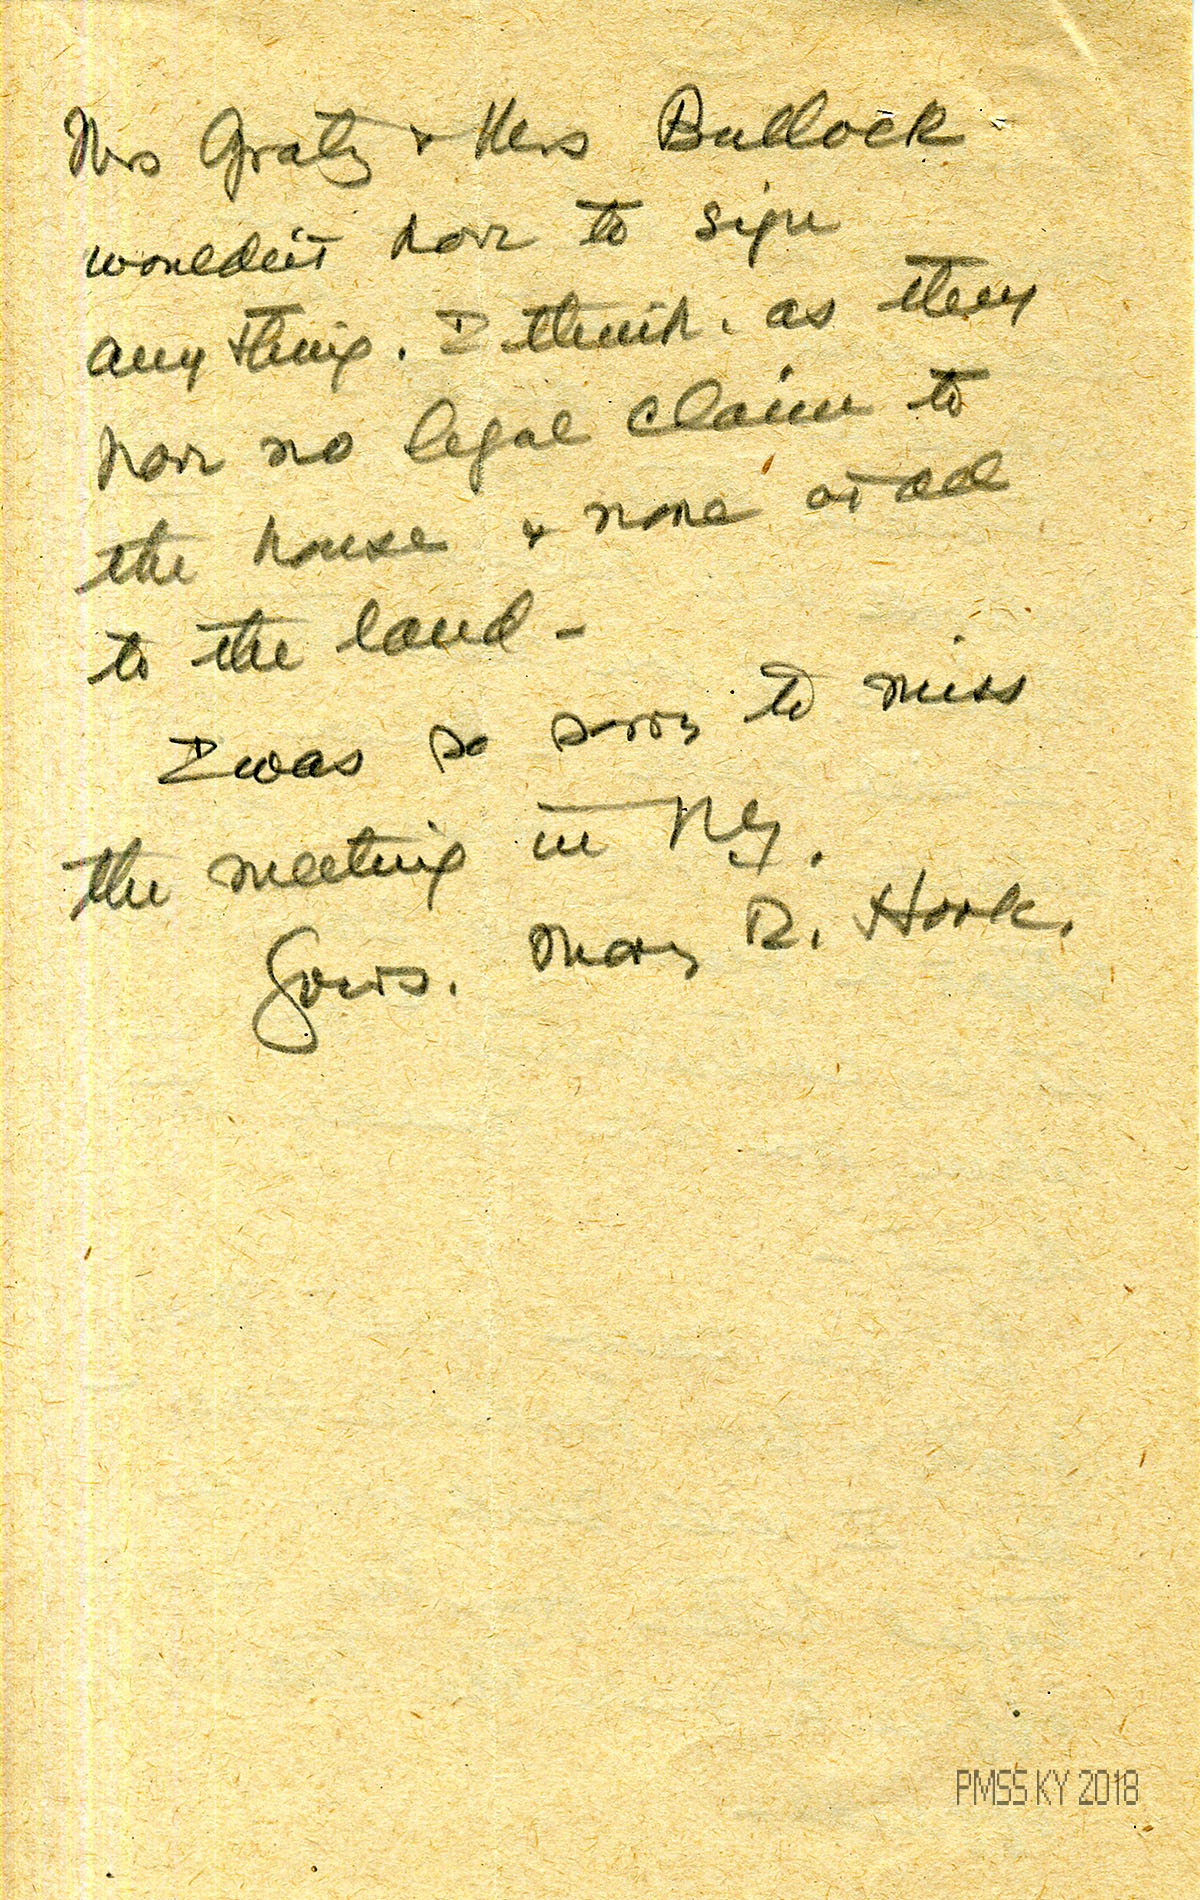 Mrs Gratz & Mrs Bullock
wouldn't have to sign
any thing. I think. as they
have no legal claim to
the house & none at all
to the land -
I was so sorry to miss
the meeting in NY.
Yours. Mary R. Hook.
PMSS KY 2018